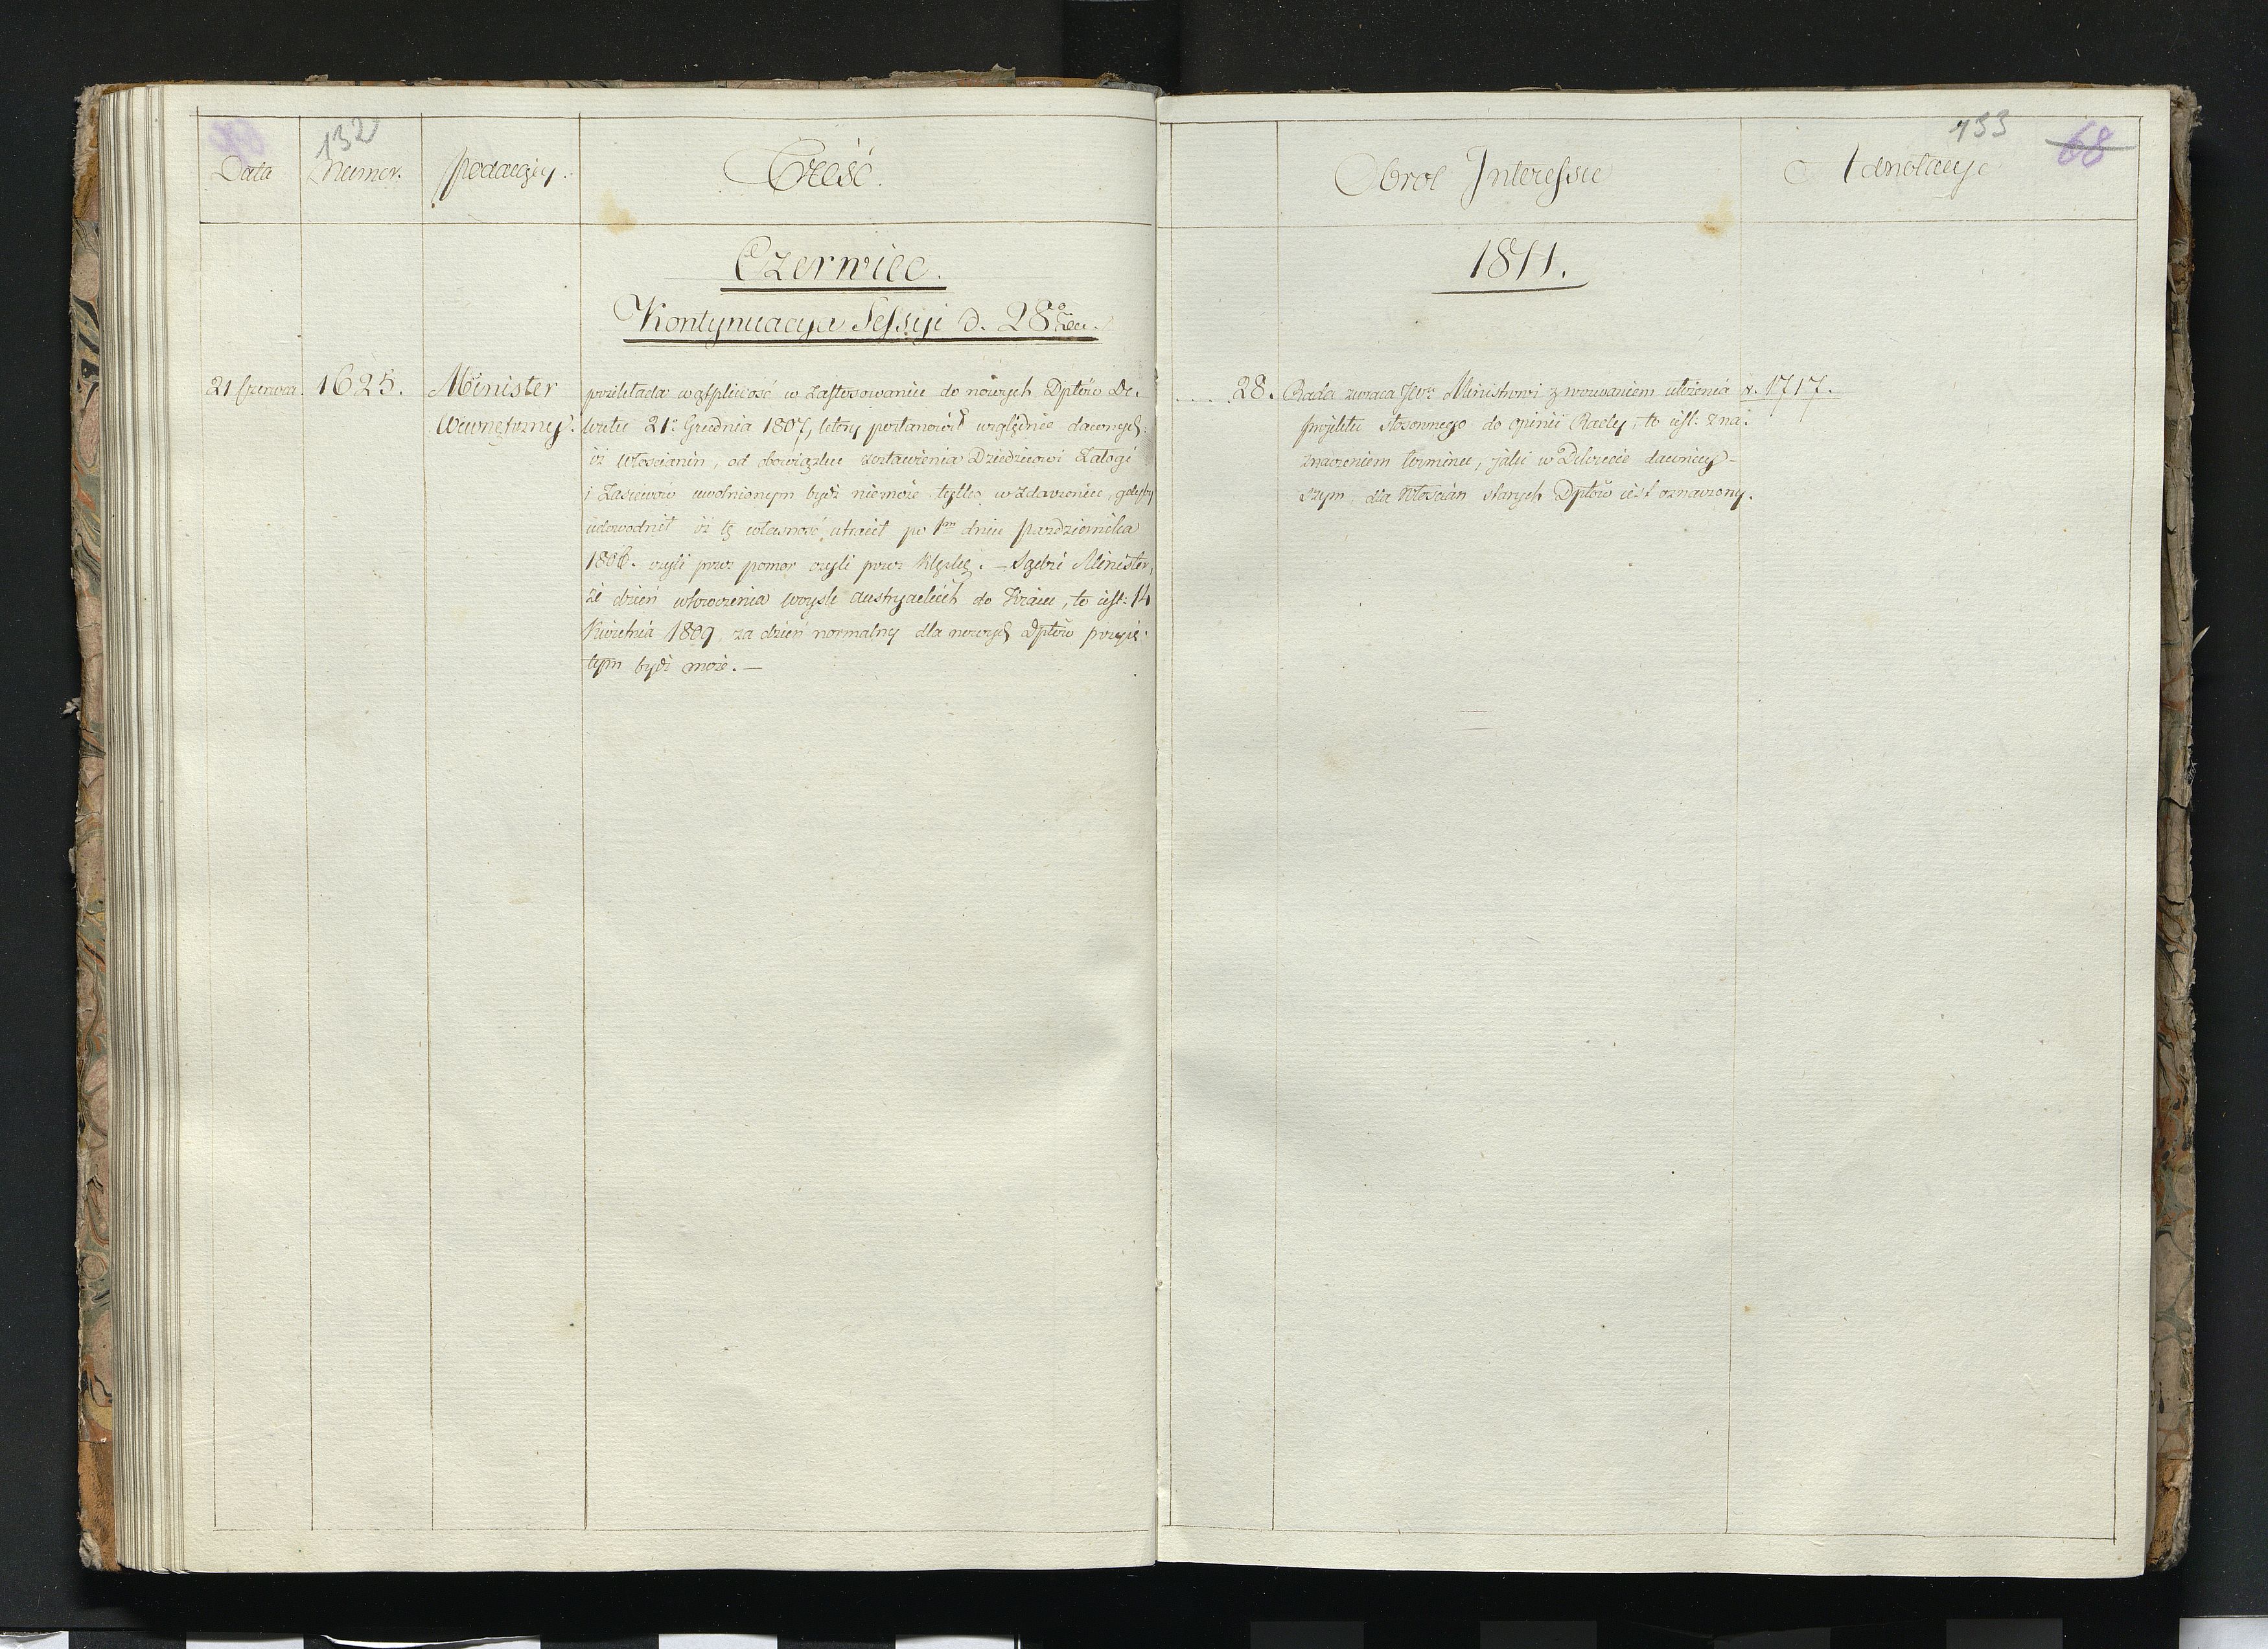 132
Data Numer. podaiący. Treść.
Czerwiec.
Kontynuacya Sessyi d. 28°
21 Czerwca. 1625. Minister
Wewnętrzny.
przekłada wątpliwość w zastosowaniu do nowych Dptów De-
kretu 21° Grudnia 1807, który postanowił względnie dawnych:
iż Włoscianin, od obowiązku zostawienia Dziedzicowi Załogi
i Zasiewów uwolnionym bydź niemoże tylko w zdarzeniu, gdyby
udowodnił iż tę własność utracił po 1m dniu pazdziernika
1806. czyli przez pomor czyli przez klęskę. — Sądzi Minister,
że dzień wkroczenia woysk austryackich do Kraiu, to iest: 14
Kwietnia 1809 za dzień normalny dla nowych Dptów przyię-
tym bydź może. —
133
68
Obrot Interessu Adnotacye
1811.
.... 28. Rada zwraca JWu Ministrowi z wezwaniem ułożenia N. 1717.
projektu stosownego do opinii Rady, to iest: z na-
znaczeniem terminu, jaki w Dekrecie dawniey-
szym, dla Włościan starych Dptów iest oznaczony.